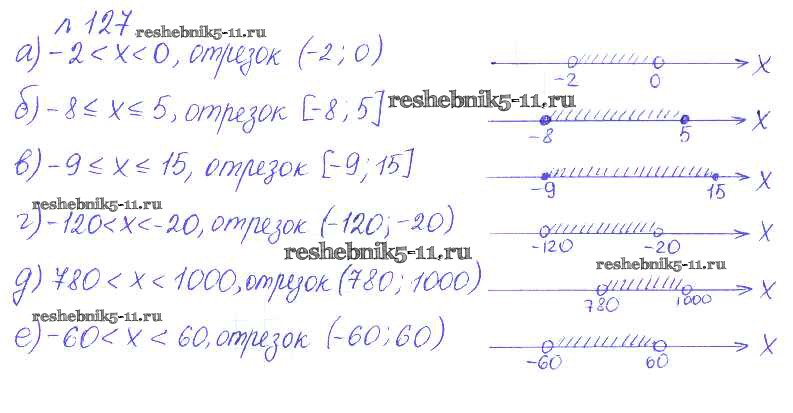 № 127
reshebnik5-11.ru
а) -2 < x < 0, отрезок (-2; 0) -2 0 x
б) -8 ≤ x ≤ 5, отрезок [-8; 5] -8 5 x
reshebnik5-11.ru
в) -9 ≤ x ≤ 15, отрезок [-9; 15] -9 15 x
reshebnik5-11.ru
г) -120 < x < -20, отрезок (-120; -20) -120 -20 x
reshebnik5-11.ru
reshebnik5-11.ru
д) 780 < x < 1000, отрезок (780; 1000) 780 1000 x
reshebnik5-11.ru
е) -60 < x < 60, отрезок (-60; 60) -60 60 x